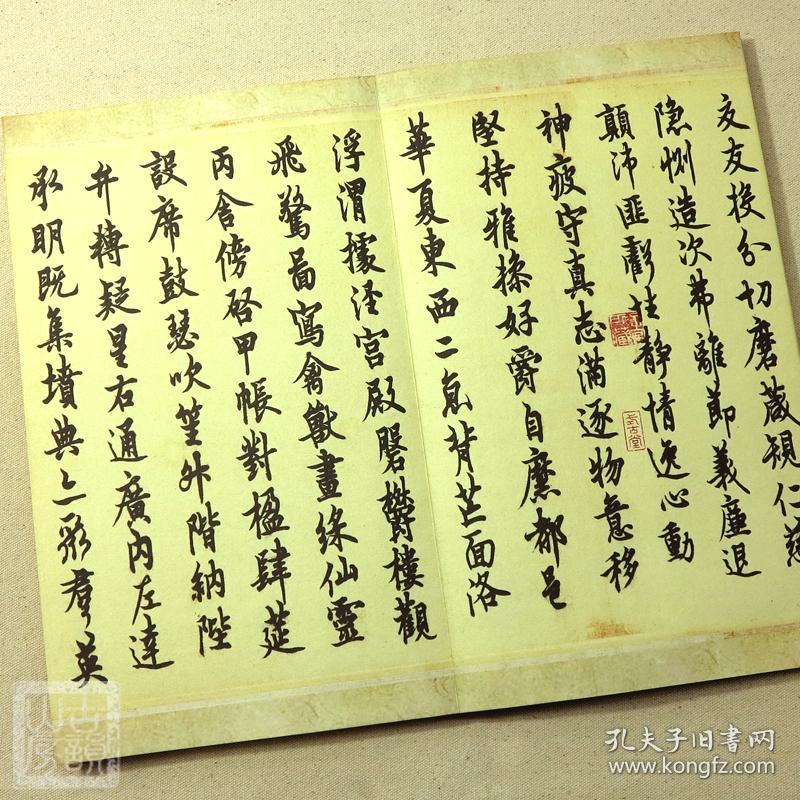 交友投分切磨箴規仁慈
隐惻造次弗離節義廉退
顛沛匪虧性静情逸心動
神疲守真志滿逐物意移
堅持雅操好爵自縻都邑
華夏東西二京背芒面洛
浮渭據涇宫殿磐欝樓觀
飛驚啚寫禽獸畫綵仙靈
丙舍傍啓甲帳對楹肆莚
設席鼓瑟吹笙升階納陛
弁轉疑星右通廣内左達
承明既集墳典亦聚羣英
孔夫子旧书网
www.kongfz.com